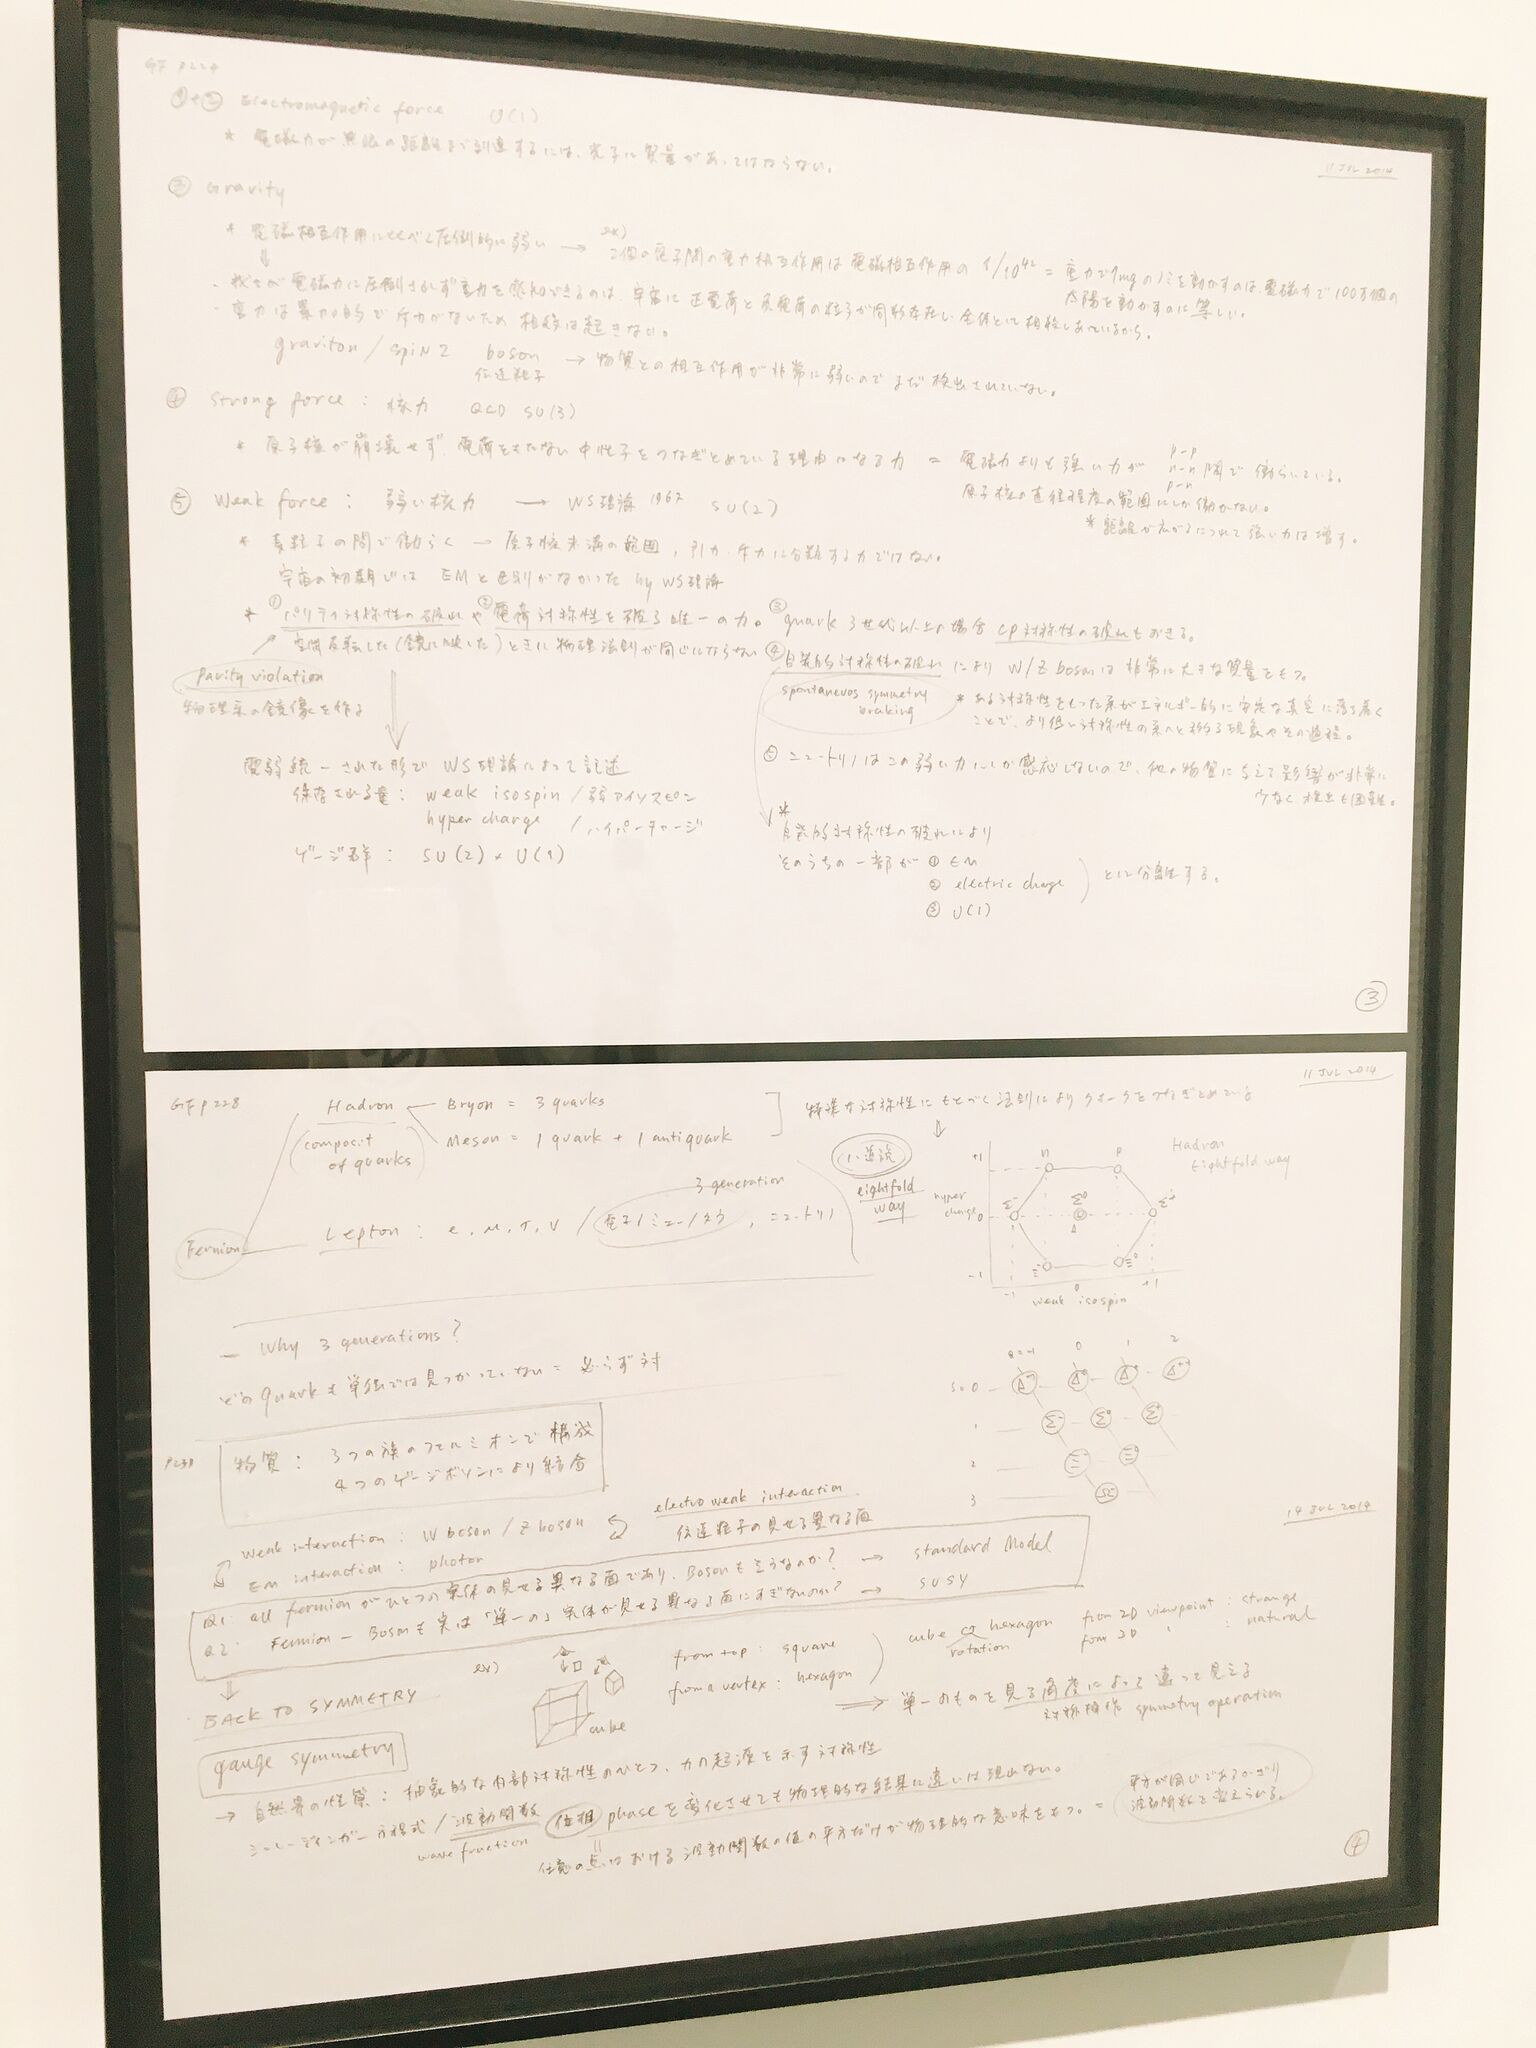 GF P224
11 JUL 2014
①+② Electromagnetic force U(1)
* 電磁力が無限の距離まで到達するには、光子に質量があってはならない。
③ Gravity
* 電磁相互作用にくらべ圧倒的に弱い → ex) 2個の電子間の重力相互作用は電磁相互作用の 1/10⁴² = 重力で1mgのノミを動かすのは、電磁力で100万個の
太陽を動かすのに等しい。
・我々が電磁力に圧倒されず重力を感知できるのは、宇宙に正電荷と負電荷の粒子が同数存在し全体として相殺しあっているから。
・重力は累加的で斥力がないため相殺は起きない。
graviton / spin 2 boson → 物質との相互作用が非常に弱いのでまだ検出されていない。
伝達粒子
④ Strong force : 核力 QCD SU(3)
* 原子核が崩壊せず、電荷をもたない中性子をつなぎとめている理由になる力 = 電磁力よりも強い力が p-p n-n p-n 間で働らいている。
原子核の直径程度の範囲にしか働かない。
* 距離が広がるにつれて強い力は増す。
⑤ Weak force : 弱い核力 → WS理論 1967 SU(2)
* 素粒子の間で働らく → 原子核未満の範囲, 引力・斥力に分類する力ではない。
宇宙の初期では EMと区別がなかった by WS理論
* ①パリティ対称性の破れや②電荷対称性を破る唯一の力。 ③quark 3世代以上の場合 CP対称性の破れもおきる。
空間反転した(鏡に映した)ときに物理法則が同じにならない
④自発的対称性の破れにより W/Z bosonは非常に大きな質量をもつ。
Parity violation
物理系の鏡像を作る
spontaneous symmetry
braking
* ある対称性をもった系がエネルギー的に安定な真空に落ち着く
ことで、より低い対称性の系へと移る現象やその過程。
⑤ ニュートリノはこの弱い力にしか感応しないので、他の物質に与える影響が非常に
少なく、検出も困難。
電弱統一された形で WS理論によって記述
保存される量 : weak isospin / 弱アイソスピン
hyper charge / ハイパーチャージ
ゲージ群 : SU(2) × U(1)
* 自発的対称性の破れにより
そのうちの一部が ① EM
② electric charge
③ U(1)
とに分離する。
③
GF P228
11 JUL 2014
Hadron
Bryon = 3 quarks
(composit
of quarks)
Meson = 1 quark + 1 antiquark
特殊な対称性にもとづく法則によりクォークをつなぎとめている
八道説
eightfold
way
Hadron
Eightfold way
3 generation
Fermion
Lepton : e, μ, τ, ν / 電子/ミュー/タウ, ニュートリノ
hyper
charge
+1
0
-1
n p
Σ⁻ Σ⁰ Σ⁺
Λ
Ξ⁻ Ξ⁰
-1 0 +1
weak isospin
— Why 3 generations?
どのquarkも単体では見つかっていない = 必らず対
Q=-1 0 1 2
S=0 Δ⁻ Δ⁰ Δ⁺ Δ⁺⁺
1 Σ⁻ Σ⁰ Σ⁺
2 Ξ⁻ Ξ⁰
3 Ω⁻
物質 : 3つの族のフェルミオンで構成
4つのゲージボソンにより結合
14 JUL 2014
Weak interaction : W boson / Z boson
EM interaction : photon
electro weak interaction
伝達粒子の見せる異なる面
Q1: all fermionがひとつの実体の見せる異なる面であり、Bosonもそうなのか? → standard Model
Q2: Fermion - Bosonも実は「単一の」実体が見せる異なる面にすぎないのか? → SUSY
BACK TO SYMMETRY
ex)
cube
from top : square
from a vertex : hexagon
cube ⇔ hexagon
rotation
from 2D viewpoint : strange
from 3D 〃 : natural
⇒ 単一のものを見る角度によって違って見える
対称操作 symmetry operation
gauge symmetry
→ 自然界の性質 : 抽象的な内部対称性のひとつ、力の起源を示す対称性
シュレーディンガー方程式 / 波動関数 位相 phaseを変化させても物理的な結果に違いは現れない。
wave function
任意の点における波動関数の値の平方だけが物理的な意味をもつ。 = 平方が同じであるかぎり
波動関数を変えられる。
④